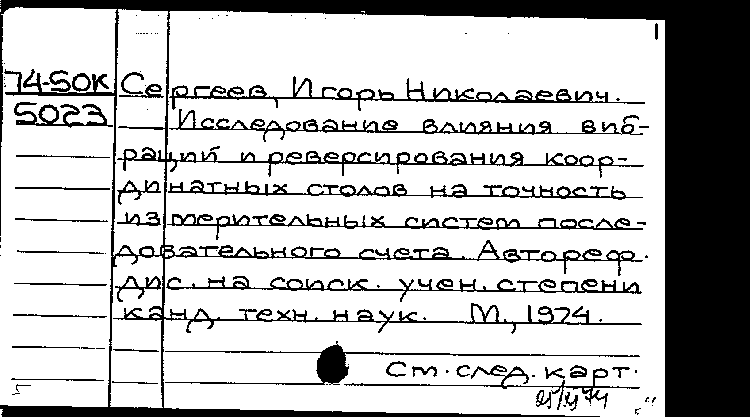 74-50К Сергеев, Игорь Николаевич.
5023 Исследование влияния виб-
раций и реверсирования коор-
динатных столов на точность
измерительных систем после-
довательного счета. Автореф.
дис. на соиск. учен. степени
канд. техн. наук. М., 1974.
См. след. карт.